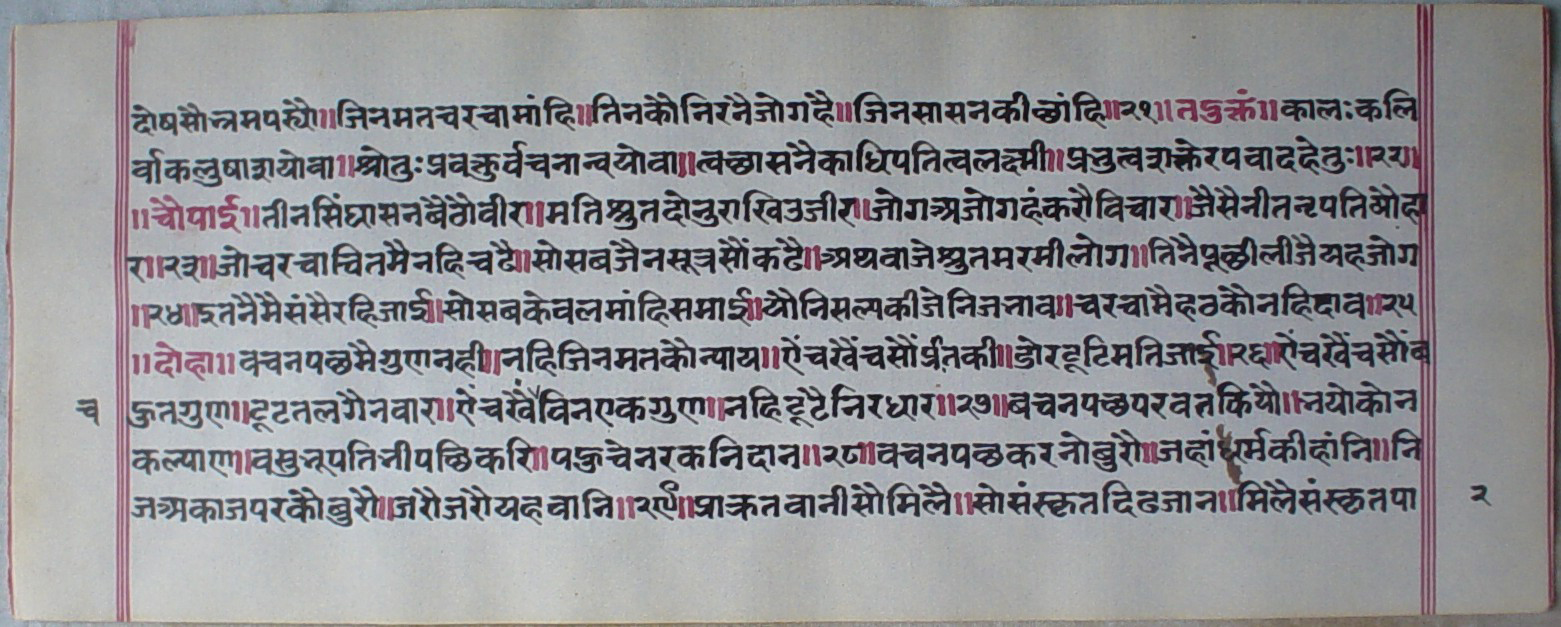 दोषसौभ्रमपर्यौ॥जिनमतचरचामांहि॥तिनकौनिरनैजोगहै॥जिनसासनकीछांहि॥२१॥तदुक्तं॥कालःकलि
र्वाकलुषाशयोवा॥श्रोतुःप्रवक्तुर्वचनान्वयोवा॥त्वच्छासनैकाधिपतित्वलक्ष्मी॥प्रभुत्वशक्तेरपवादहेतुः॥२२॥
॥चौपाई॥तीनसिंघासनबैठोवीर॥मतिश्रुतदोनुराखिउजीर॥जोगअजोगहंकरौविचार॥जैसैनीतनृपतियौहा
र॥२३॥जोचरचाचितमैनहिचढै॥सोसबजैनसूत्रसौंकढै॥अथवाजेश्रुतमरमीलोग॥तिनैपूछीलीजैयहजोग
॥२४॥इतनैमैसंसैरहिजाई॥सोसबकेवलमांहिसमाई॥यौनिसल्यकीजेनिजभाव॥चरचामैहठकौनहिदाव॥२५
॥दोहा॥वचनपछमैगुणनही॥नहिजिनमतकौन्याय॥ऐंचखैंचसौंप्रीतकी॥डोरटूटिमतिजाई॥२६॥ऐंचखैंचसौंब
च हुतगुण॥टूटतलगैनवार॥ऐंचखैंविनएकगुण॥नहिटूटैनिरधार॥२७॥बचनपच्छपरवतकियौ॥भयोकोन
कल्याण॥वसुभूपतिनीपछिकरि॥पहुचेनरकनिदान॥२८॥वचनपछकरनोबुरौ॥जहांधर्मकीहांनि॥नि
जअकाजपरकौबुरौ॥जरौजरौयहवानि॥२९॥प्राक्रतवानीसौमिलै॥सोसंस्कृतदिढजान॥मिलैसंस्कृतपा २